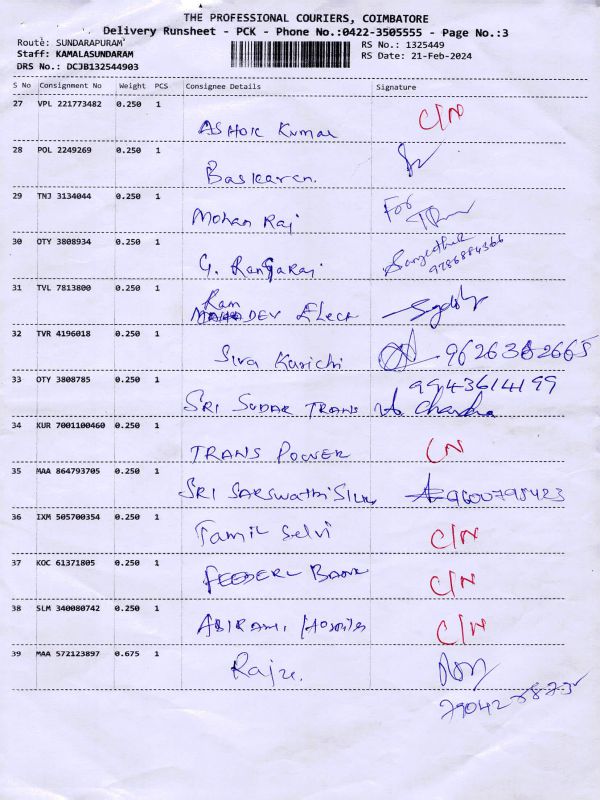 THE PROFESSIONAL COURIERS, COIMBATORE
Delivery Runsheet - PCK - Phone No.:0422-3505555 - Page No.:3
Route: SUNDARAPURAM RS No.: 1325449
Staff: KAMALASUNDARAM RS Date: 21-Feb-2024
DRS No.: DCJB132544903
S No Consignment No Weight PCS Consignee Details Signature
27 VPL 221773482 0.250 1 ASHOK KUMAR C/N
28 POL 2249269 0.250 1 Baskaran.
29 TNJ 3134044 0.250 1 Mohan Raj For
30 OTY 3808934 0.250 1 G. RANGARAJ Sangeetha
9786884366
31 TVL 7813800 0.250 1 Ram DEV Elect
32 TVR 4196018 0.250 1 Siva Kurichi 9626362665
33 OTY 3808785 0.250 1 SRI SUDAR TRANS 9943614199
Chandra
34 KUR 7001100460 0.250 1 TRANS POWER CN
35 MAA 864793705 0.250 1 SRI SARSWATHI SILK 9600795423
36 IXM 505700354 0.250 1 Tamil Selvi C/N
37 KOC 61371805 0.250 1 FEEDERL BANK C/N
38 SLM 340080742 0.250 1 ABIRAMI C/N
39 MAA 572123897 0.675 1 Raju.